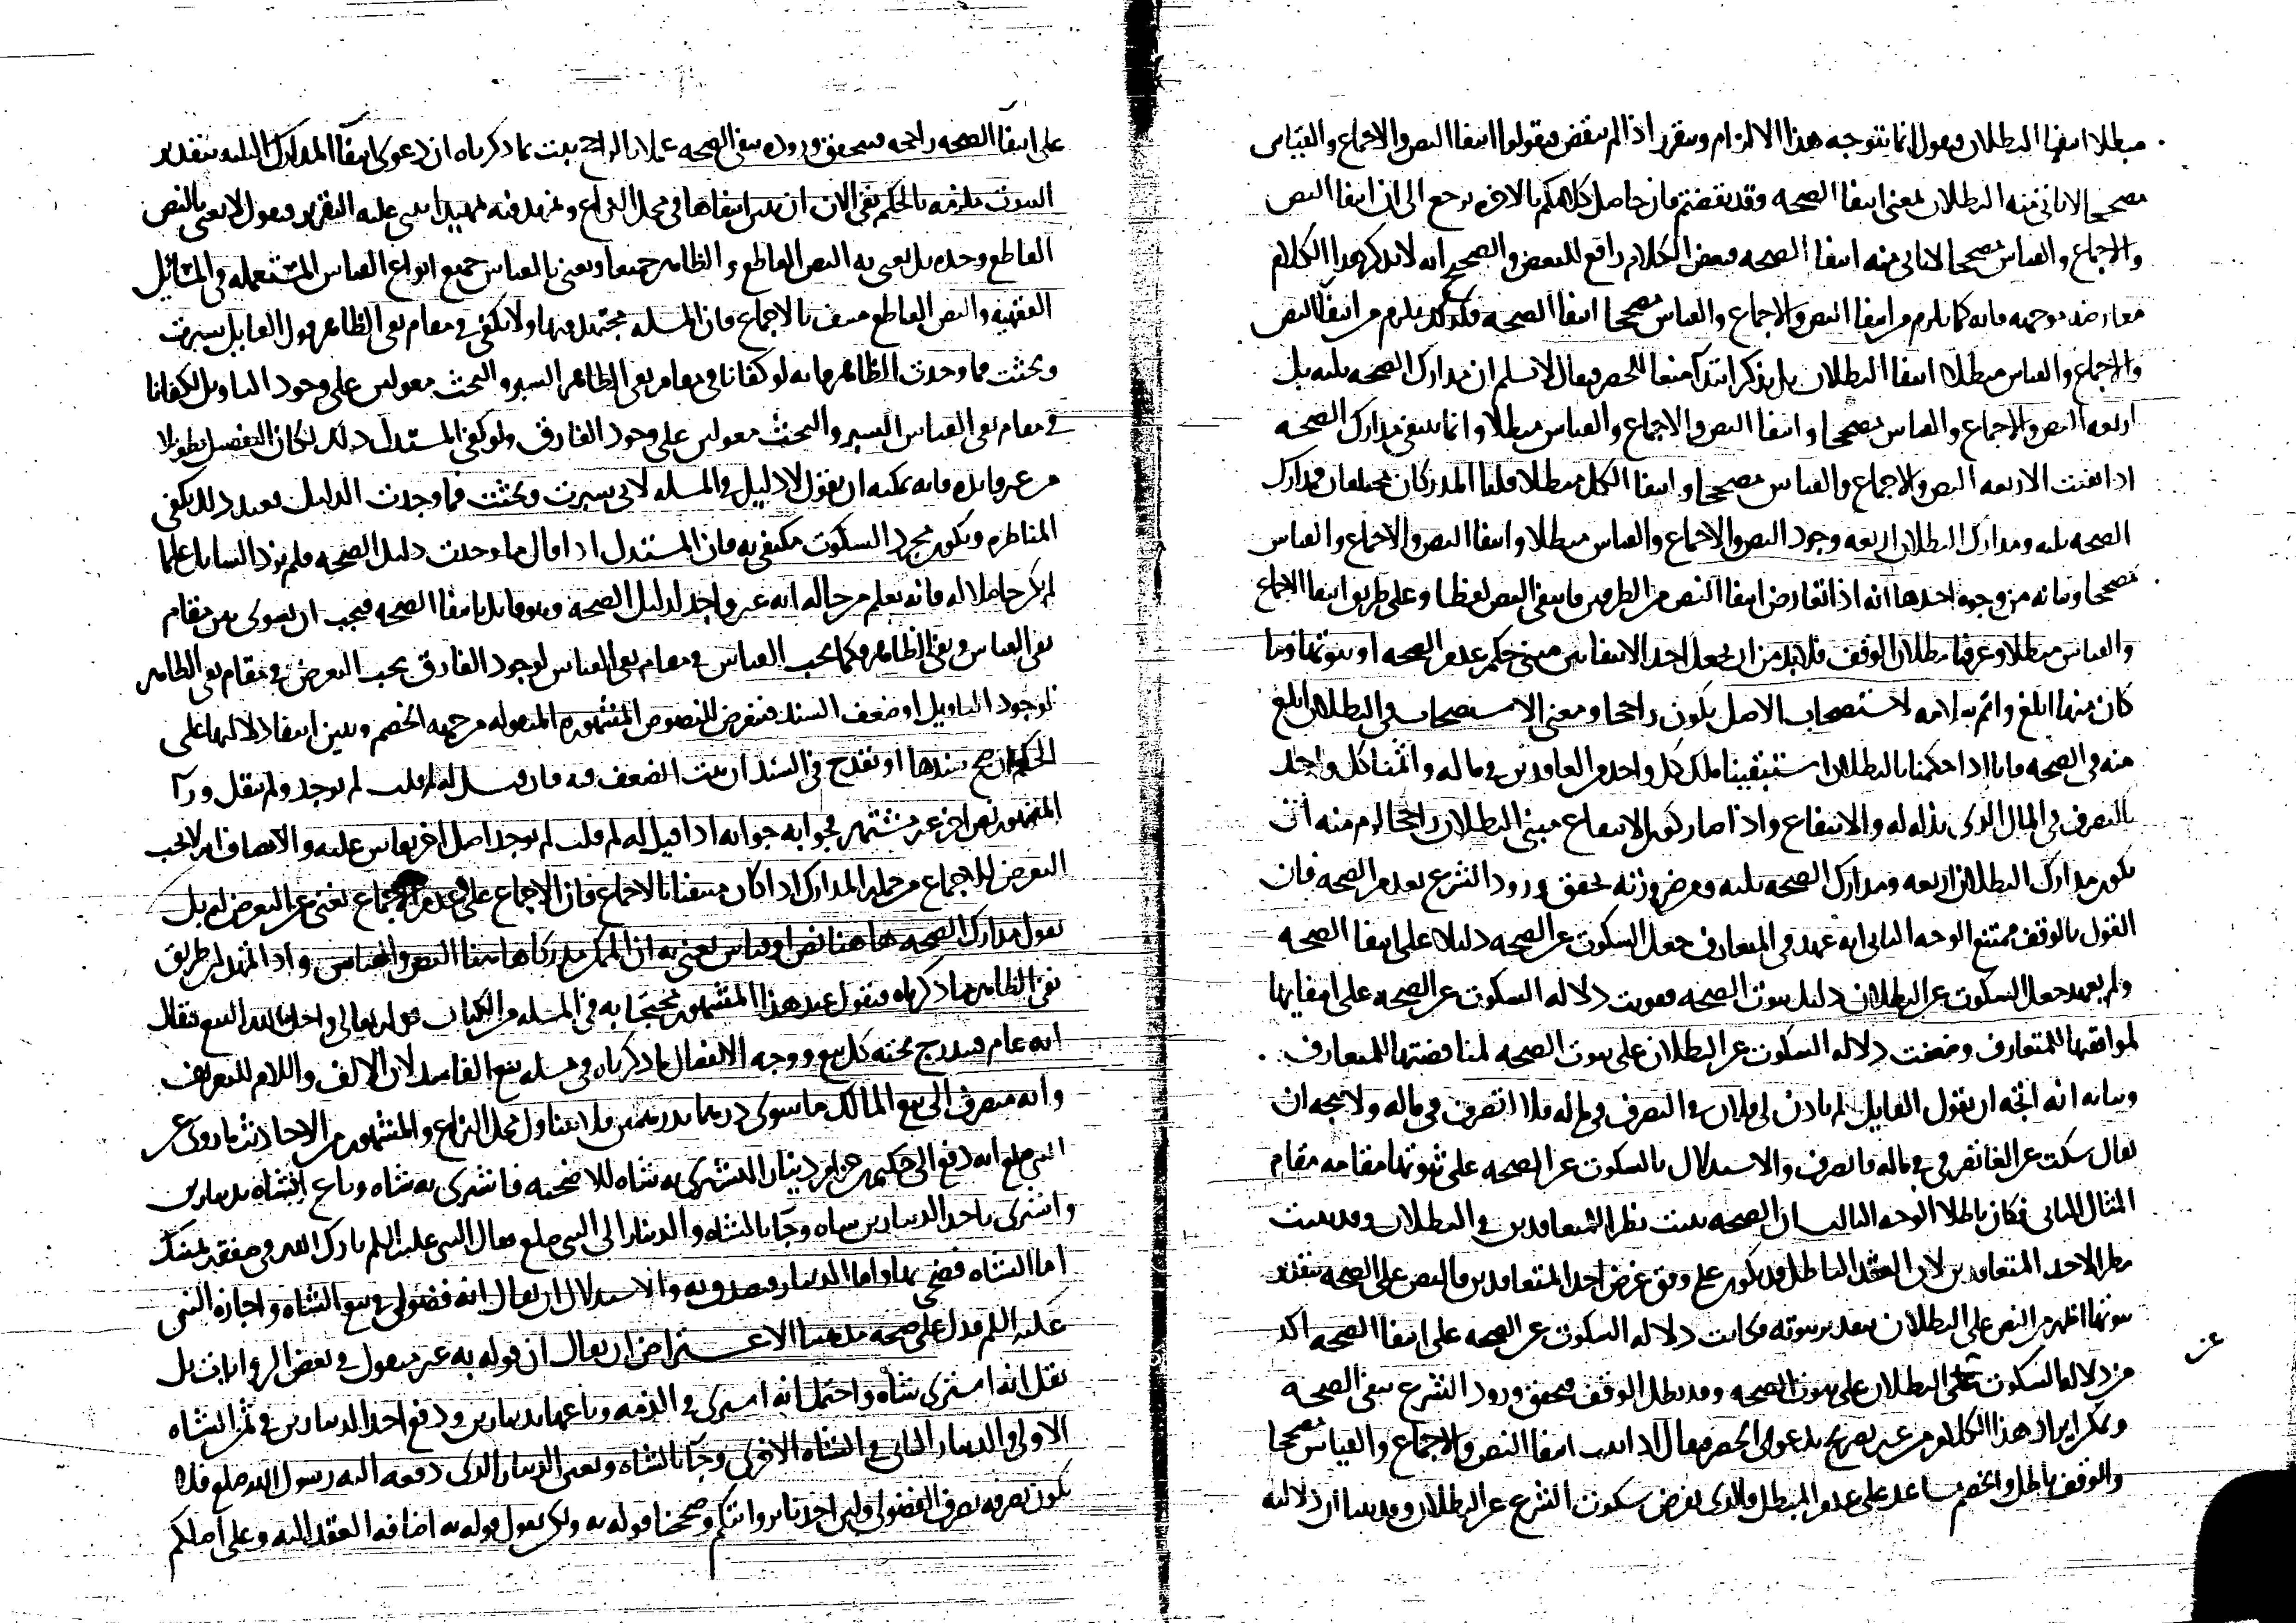 مبطلا انتفا البطلان ونقول انما يتوجه هذا الالزام ويتقرر اذا لم ينقض بقولوا انتفا النص والاجماع والقياس
مصححا لاثاني منه البطلان لمعنى انتفا الصحه وقد نقضتم فان حاصل كلامكم بالاخره يرجع الى ان انتفا النص
والاجماع والقياس مصححا لاثاني منه انتفا الصحه فبعض الكلام رافع للبعض والصحيح انه لا يذكر هذا الكلام
معارضه موجهه فانه كما يلزم من انتفا النص والاجماع والقياس مصححا انتفا الصحه فكذلك يلزم من انتفا النص
والاجماع والقياس مبطلا انتفا البطلان بل يذكر ابتدآ منعا للحصر فيقال لا نسلم ان مدارك الصحه ثلثه بل
اربعه النص والاجماع والقياس مصححا وانتفا النص والاجماع والقياس مبطلا وانما ينتفى مدارك الصحه
اذا انتفت الاربعه النص والاجماع والقياس مصححا وانتفا الكل مبطلا قلنا المدركان مختلفان فمدارك
الصحه ثلثه ومدارك البطلان اربعه وجود النص والاجماع والقياس مبطلا وانتفا النص والاجماع والقياس
مصححا وبيانه من وجوه احدها انه اذا تعارض انتفا النص من الطرفين فانتفى النص لفظا وعلى طريق انتفا الاجماع
والقياس مبطلا وعرفنا بطلان الوقف فلا بد من ان يجعل احد الانتفاين مبنى حكم عدم الصحه او ثبوتها وما
كان منها ابلغ واتم ملامه لاستصحاب الاصل يكون راجحا ومعنى الاستصحاب في البطلان ابلغ
منه في الصحه فانا اذا حكمنا بالبطلان استبقينا ملك كل واحد من العاقدين في ماله واثبتنا كل واحد
بالتصرف في المال الذى بذله له والانتفاع واذا صار كون الانتفاع مبنى البطلان راجحا لزم منه ان
يكون مدارك البطلان اربعه ومدارك الصحه ثلثه وبعرض وزنه تحقق ورود الشرع بعدم الصحه فان
القول بالوقف ممتنع الوجه الثاني انه عهد في المتعارف جعل السكوت عن الصحه دليلا على انتفا الصحه
ولم يعهد جعل السكوت عن البطلان دليل ثبوت الصحه فقويت دلالة السكوت عن الصحه على انتفايها
لموافقتها للمتعارف وضعفت دلاله السكوت عن البطلان على ثبوت الصحه لمناقضتها للمتعارف
وبيانه انه اتجه ان يقول القايل لم ياذن لي فلان في التصرف في ماله فلا اتصرف في ماله ولا يتجه ان
يقال سكت عن الغا تصرفي في ماله فاتصرف والاستدلال بالسكوت عن الصحه على ثبوتها مقامه مقام
المثال الثاني فكان باطلا الوجه الثالث ان الصحه تثبت نظرا للمتعاقدين في البطلان وقد يثبت
نظرا لاحد المتعاقدين لان العقد الباطل قد يكون على وفق غرض احد المتعاقدين فالنص على الصحه بتقدير
ثبوتها اظهر من النص على البطلان بتقدير ثبوته فكانت دلاله السكوت عن الصحه على انتفا الصحه اكد
من دلاله السكوت عن البطلان على ثبوت الصحه وقد بطل الوقف فتحقق ورود الشرع بنفى الصحه
عن
ويمكن ايراد هذا الكلام من غير تصريح بدعوى الحصر فيقال اذا ثبت انتفا النص والاجماع والقياس مصححا
والوقف باطل والخصم مساعد على عدم المبطل فالذى نفرض سكوت الشرع عن البطلان وقد بينا ان دلالته
على انتفا الصحه راجحه فيتحقق وروده بنفى الصحه عملا بالراجح ثبت بما ذكرناه ان دعوى انتفآ المدارك الثلثه بتقدير
الثبوت ملزمه بالحكم بقى الان ان نبين انتفاها في محل النزاع ونمهد فيه تمهيدا يبنى عليه التقرير ونقول لا نعنى بالنص
القاطع وحده بل نعنى به النص القاطع والظاهر جميعا ونعنى بالقياس جميع انواع القياس المستعمله في المسائل
الفقهيه والنص القاطع منتف بالاجماع فان المسله مجتهد فيها ولا يكفى في مقام نفى الظاهر قول القايل سبرت
وبحثت فما وجدت الظاهر فانه لو كفانا في مقام نفى الظاهر السبر والبحث معولين على وجود التاويل لكفانا
في مقام نفى القياس السبر والبحث معولين على وجود الفارق ولو كفى المستدل ذلك لكان التفصيل تطويلا
من غير فايده فانه يمكنه ان يقول لا دليل في المسله لانى سبرت وبحثت فما وجدت الدليل فعند ذلك يكفى
المناظره ويكون مجرد السكوت مكتفى به فان المستدل اذا قال ما وجدت دليل الصحه فلم يزد السايل علما
لم يكن حاصلا له فانه يعلم من حاله انه غير واجد لدليل الصحه وهو قايل بانتفا الصحه فيجب ان يسوى بين مقام
نفى القياس ونفى الظاهر فكما يجب القياس في مقام نفى القياس لوجود الفارق يجب التعرض في مقام نفى الظاهر
لوجود التاويل او ضعف السند فنتعرض للنصوص المشهوره المنقوله من جهه الخصم ونبين انتفا دلالتها على
الحكم ان صح سندها او نقدح في السند ان بينت الضعف فيه فان قيل له لم قلت لم يوجد ولم ينقل ورآ
المشهور نص اخر غير مشتهر فجوابه جوابه اذا قيل له لم قلت لم يوجد اصل اخر يقاس عليه والانصاف انه لا يجب
التعرض للاجماع من جمله المدارك اذا كان منتفيا بالاجماع فان الاجماع على عدم الاجماع يغنى عن التعرض له بل
نقول مدارك الصحه هاهنا نص او قياس نعنى به ان الممكن مدركا هاهنا النص والقياس واذا تمهد طريق
نفى الظاهر بما ذكرناه فنقول عند هذا المشهور محتجا به في المسله من الكتاب قوله تعالى واحل الله البيع يقال
انه عام فيندرج تحته كل بيع ووجه الانفصال ما ذكرناه في مسله بيع الفاسد لان الالف واللام للتعريف
وانه منصرف الى بيع المالك ما سوى درهما بدرهمين فلا يتناول محل النزاع والمشهور من الاحاديث ما روى عن
النبى صلع انه دفع الى حكيم بن حزام دينارا ليشترى به شاه للاضحيه فاشترى به شاه وباع الشاه بدينارين
واشترى باحد الدينارين شاه وجآ بالشاه والدينار الى النبى صلع فقال النبى عليه السلم بارك الله في صفقه يمينك
اما الشاه فضحى بها واما الدينار فتصدق به والاستدلال ان يقال انه فضولى في بيع الشاه واجازه النبى
عليه السلم فدل على صحه مذهبنا الاعتراض ان يقال ان قوله به غير منقول في بعض الروايات بل
نقل انه اشترى شاه واحتمل انه اشترى في الذمه وباعها بدينارين ودفع احد الدينارين في ثمن الشاه
الاولى والدينار الثاني في الشاه الاخرى وجآ بالشاه وبعين الدينار الذى دفعه اليه رسول الله صلع فلا
يكون تصرفه تصرف الفضولى ولين اخذنا بروايتكم وصححنا قوله به ولكن نقول قوله به اضافه العقد اليه وعلى اصلكم